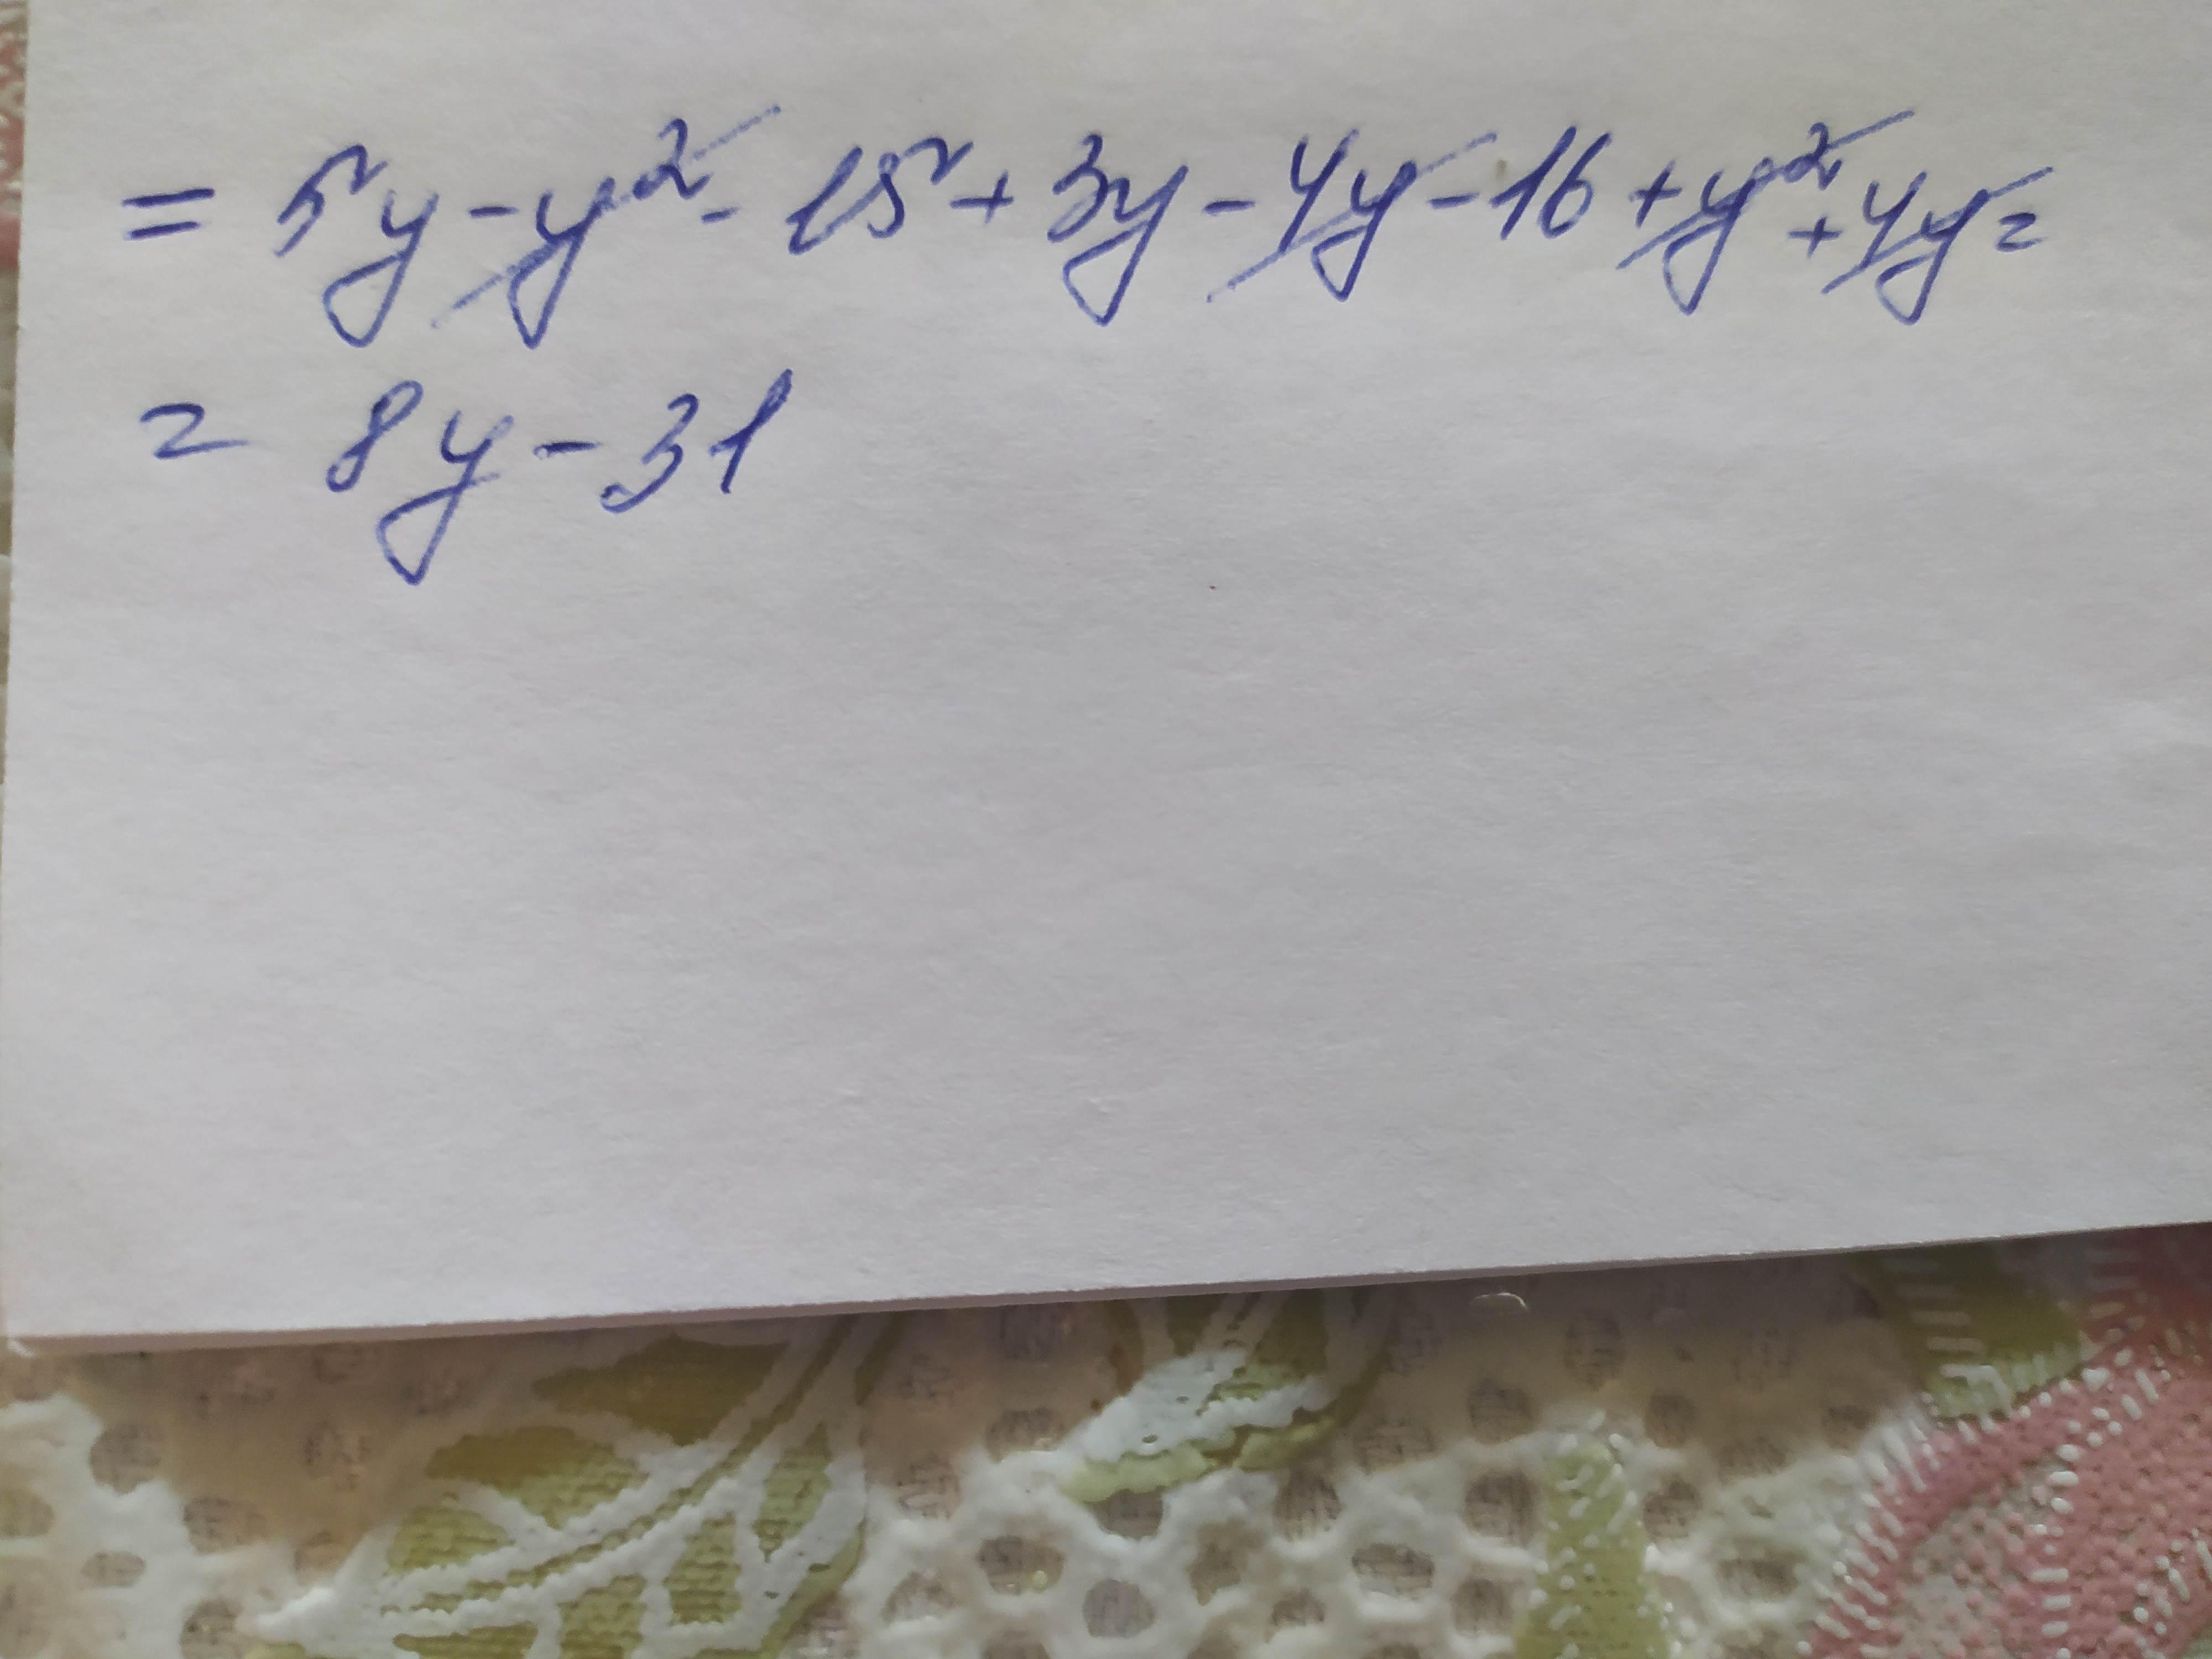 = 5y - y² - 15 + 3y - 4y - 16 + y² + 4y =
= 8y - 31